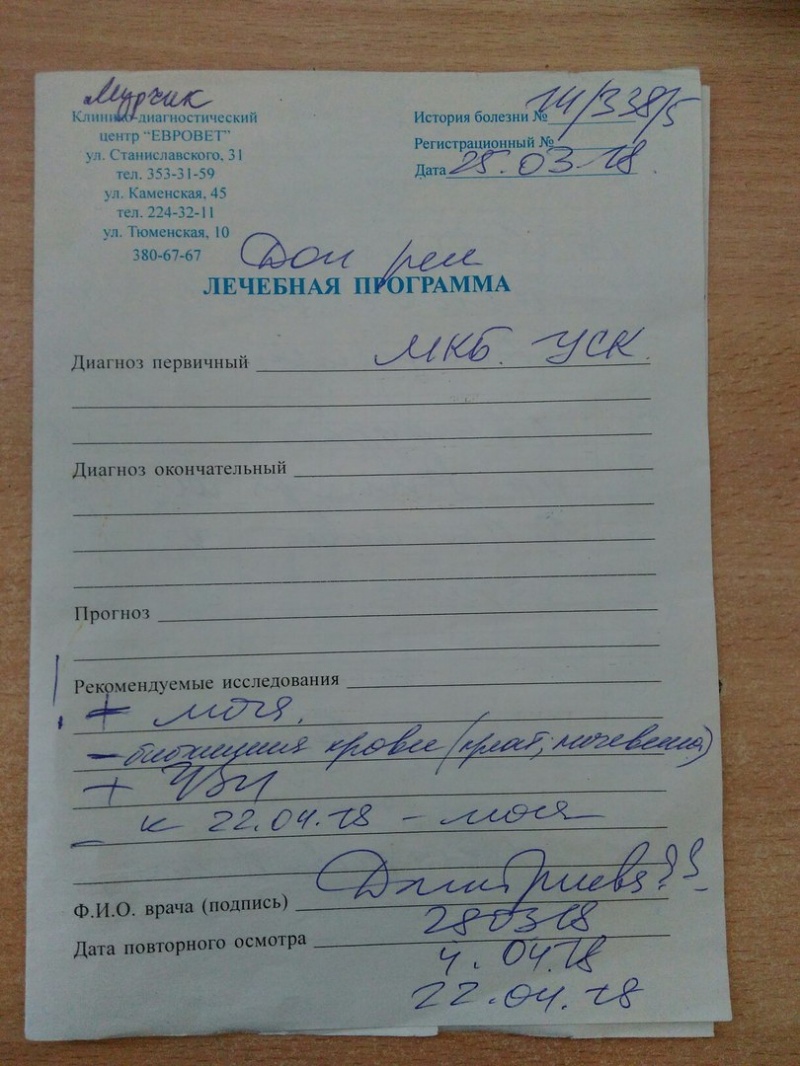 Мурчик
Клинико-диагностический
центр "ЕВРОВЕТ"
ул. Станиславского, 31
тел. 353-31-59
ул. Каменская, 45
тел. 224-32-11
ул. Тюменская, 10
380-67-67
История болезни № 14/338/5
Регистрационный №
Дата 25.03.18
Дон
ЛЕЧЕБНАЯ ПРОГРАММА
Диагноз первичный МКБ. УСК.
Диагноз окончательный
Прогноз
Рекомендуемые исследования
+ моча.
- биохимия крови (креат; мочевина)
+ УЗИ
- к 22.04.18 - моча
Ф.И.О. врача (подпись) Дмитриева
Дата повторного осмотра 280318
4.04.18
22.04.18